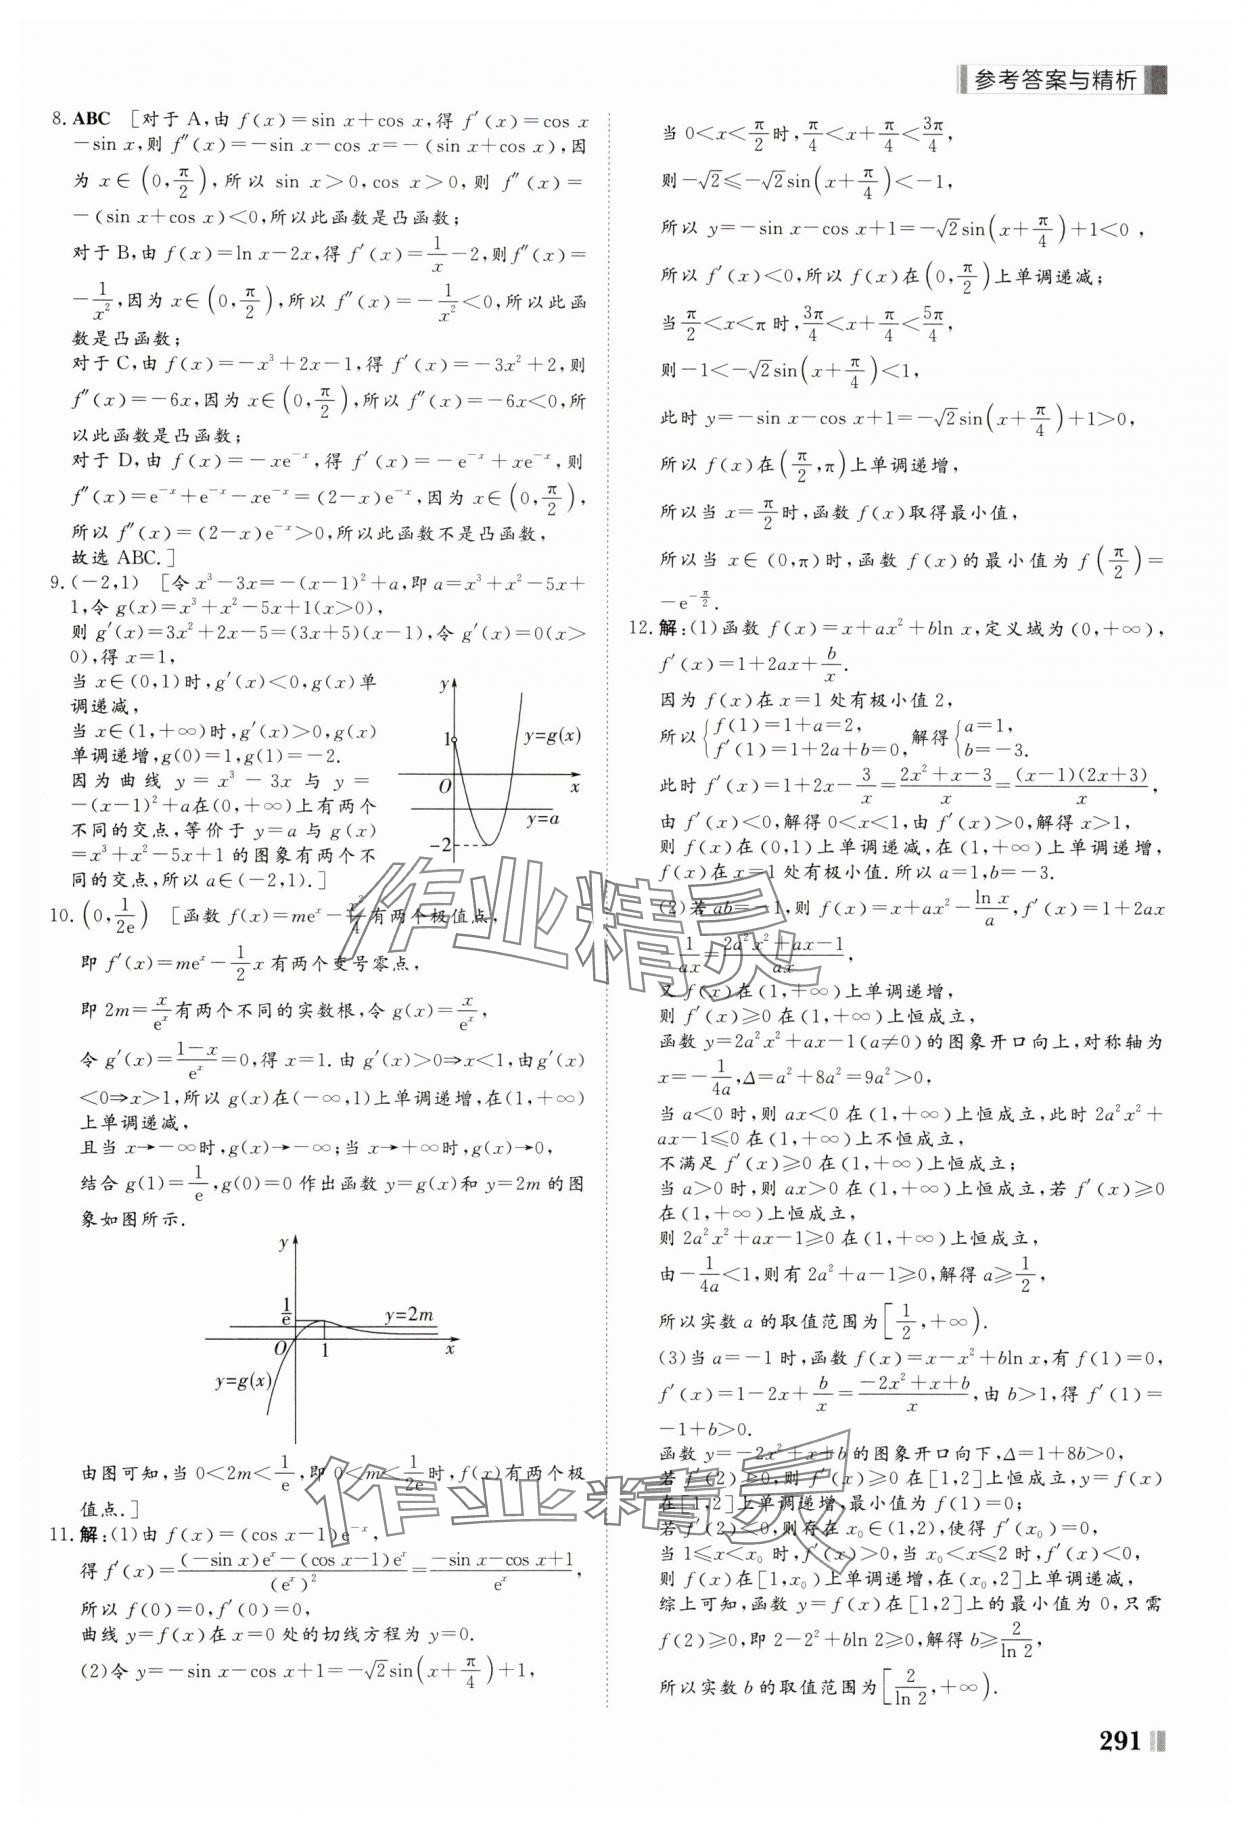 参考答案与精析
8. ABC [对于 A,由 f(x)=sin x+cos x,得 f′(x)=cos x
-sin x,则 f″(x)=-sin x-cos x=-(sin x+cos x),因
为 x∈(0,π/2),所以 sin x>0,cos x>0,则 f″(x)=
-(sin x+cos x)<0,所以此函数是凸函数;
对于 B,由 f(x)=ln x-2x,得 f′(x)=1/x-2,则 f″(x)=
-1/x²,因为 x∈(0,π/2),所以 f″(x)=-1/x²<0,所以此函
数是凸函数;
对于 C,由 f(x)=-x³+2x-1,得 f′(x)=-3x²+2,则
f″(x)=-6x,因为 x∈(0,π/2),所以 f″(x)=-6x<0,所
以此函数是凸函数;
对于 D,由 f(x)=-xe⁻ˣ,得 f′(x)=-e⁻ˣ+xe⁻ˣ,则
f″(x)=e⁻ˣ+e⁻ˣ-xe⁻ˣ=(2-x)e⁻ˣ,因为 x∈(0,π/2),
所以 f″(x)=(2-x)e⁻ˣ>0,所以此函数不是凸函数,
故选 ABC.]
9. (-2,1) [令 x³-3x=-(x-1)²+a,即 a=x³+x²-5x+
1,令 g(x)=x³+x²-5x+1(x>0),
则 g′(x)=3x²+2x-5=(3x+5)(x-1),令 g′(x)=0(x>
0),得 x=1,
当 x∈(0,1)时,g′(x)<0,g(x)单
调递减,
当 x∈(1,+∞)时,g′(x)>0,g(x)
单调递增,g(0)=1,g(1)=-2.
因为曲线 y=x³-3x 与 y=
-(x-1)²+a在(0,+∞)上有两个
不同的交点,等价于 y=a 与 g(x)
=x³+x²-5x+1 的图象有两个不
同的交点,所以 a∈(-2,1).]
y
1
y=g(x)
O
x
y=a
-2
10. (0,1/2e) [函数 f(x)=meˣ-x²/4有两个极值点,
即 f′(x)=meˣ-1/2x 有两个变号零点,
即 2m=x/eˣ有两个不同的实数根,令 g(x)=x/eˣ,
令 g′(x)=(1-x)/eˣ=0,得 x=1.由 g′(x)>0⇒x<1,由g′(x)
<0⇒x>1,所以 g(x)在(-∞,1)上单调递增,在(1,+∞)
上单调递减,
且当 x→-∞时,g(x)→-∞;当 x→+∞时,g(x)→0,
结合 g(1)=1/e,g(0)=0 作出函数 y=g(x)和 y=2m 的图
象如图所示.
y
1/e
y=2m
O
1
x
y=g(x)
由图可知,当 0<2m<1/e,即 0<m<1/2e时,f(x)有两个极
值点.]
11. 解:(1)由 f(x)=(cos x-1)e⁻ˣ,
得 f′(x)=((-sin x)eˣ-(cos x-1)eˣ)/(eˣ)²=(-sin x-cos x+1)/eˣ,
所以 f(0)=0,f′(0)=0,
曲线 y=f(x)在 x=0 处的切线方程为 y=0.
(2)令 y=-sin x-cos x+1=-√2sin(x+π/4)+1,
当 0<x<π/2时,π/4<x+π/4<3π/4,
则-√2≤-√2sin(x+π/4)<-1,
所以 y=-sin x-cos x+1=-√2sin(x+π/4)+1<0,
所以 f′(x)<0,所以 f(x)在(0,π/2)上单调递减;
当π/2<x<π时,3π/4<x+π/4<5π/4,
则-1<-√2sin(x+π/4)<1,
此时 y=-sin x-cos x+1=-√2sin(x+π/4)+1>0,
所以 f(x)在(π/2,π)上单调递增,
所以当 x=π/2时,函数 f(x)取得最小值,
所以当 x∈(0,π)时,函数 f(x)的最小值为 f(π/2)=
-e^(-π/2).
12. 解:(1)函数 f(x)=x+ax²+bln x,定义域为(0,+∞),
f′(x)=1+2ax+b/x.
因为 f(x)在 x=1 处有极小值 2,
所以{f(1)=1+a=2, f′(1)=1+2a+b=0, 解得{a=1, b=-3.
此时 f′(x)=1+2x-3/x=(2x²+x-3)/x=((x-1)(2x+3))/x,
由 f′(x)<0,解得 0<x<1,由 f′(x)>0,解得 x>1,
则 f(x)在(0,1)上单调递减,在(1,+∞)上单调递增,
f(x)在 x=1 处有极小值.所以 a=1,b=-3.
(2)若 ab=-1,则 f(x)=x+ax²-ln x/a,f′(x)=1+2ax
-1/ax=(2a²x²+ax-1)/ax,
又 f(x)在(1,+∞)上单调递增,
则 f′(x)≥0在(1,+∞)上恒成立,
函数 y=2a²x²+ax-1(a≠0)的图象开口向上,对称轴为
x=-1/4a,Δ=a²+8a²=9a²>0,
当 a<0 时,则 ax<0 在(1,+∞)上恒成立,此时 2a²x²+
ax-1≤0 在(1,+∞)上不恒成立,
不满足 f′(x)≥0在(1,+∞)上恒成立;
当 a>0 时,则 ax>0 在(1,+∞)上恒成立,若 f′(x)≥0
在(1,+∞)上恒成立,
则 2a²x²+ax-1≥0 在(1,+∞)上恒成立,
由-1/4a<1,则有 2a²+a-1≥0,解得 a≥1/2,
所以实数 a 的取值范围为[1/2,+∞).
(3)当 a=-1 时,函数 f(x)=x-x²+bln x,有 f(1)=0,
f′(x)=1-2x+b/x=(-2x²+x+b)/x,由 b>1,得 f′(1)=
-1+b>0.
函数 y=-2x²+x+b 的图象开口向下,Δ=1+8b>0,
若 f′(2)≥0,则 f′(x)≥0 在[1,2]上恒成立,y=f(x)
在[1,2]上单调递增,最小值为 f(1)=0;
若 f′(2)<0,则存在 x₀∈(1,2),使得 f′(x₀)=0,
当 1≤x<x₀ 时,f′(x)>0,当 x₀<x≤2 时,f′(x)<0,
则 f(x)在[1,x₀)上单调递增,在(x₀,2]上单调递减,
综上可知,函数 y=f(x)在[1,2]上的最小值为 0,只需
f(2)≥0,即 2-2²+bln 2≥0,解得 b≥2/ln 2,
所以实数 b 的取值范围为[2/ln 2,+∞).
作业精灵
作业精灵
291